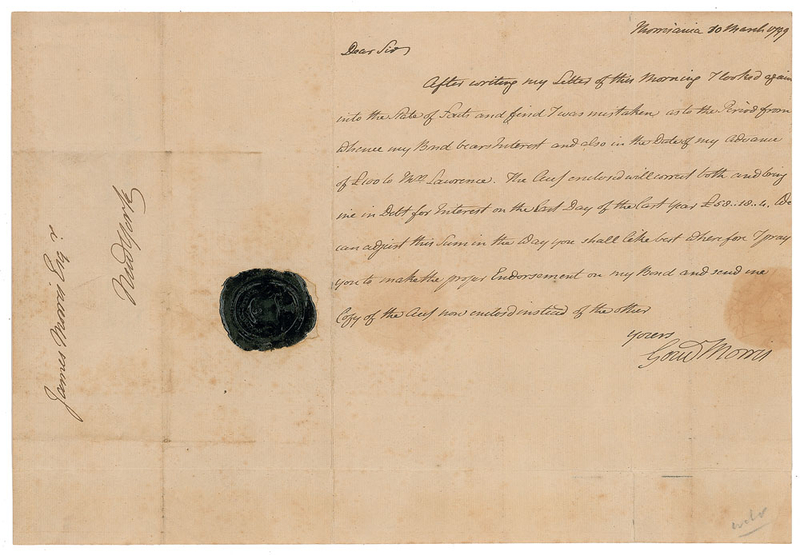 Morrisania 10 March 1799
Dear Sir
After writing my Letter of this Morning I looked again
into the State of Facts and find I was mistaken as to the Period from
whence my Bond bears Interest and also in the Date of my advance
of £100 to Mr. Lawrence. The Acct enclosed will correct both and bring
me in Debt for Interest on the last Day of the last Year £58.18.4. We
can adjust this Sum in the Way you shall like best wherefore I pray
you to make the proper Endorsement on my Bond and send me
Copy of the Acct now enclosed instead of the other
Yours
Gouv Morris
James Morris Esqr
New York